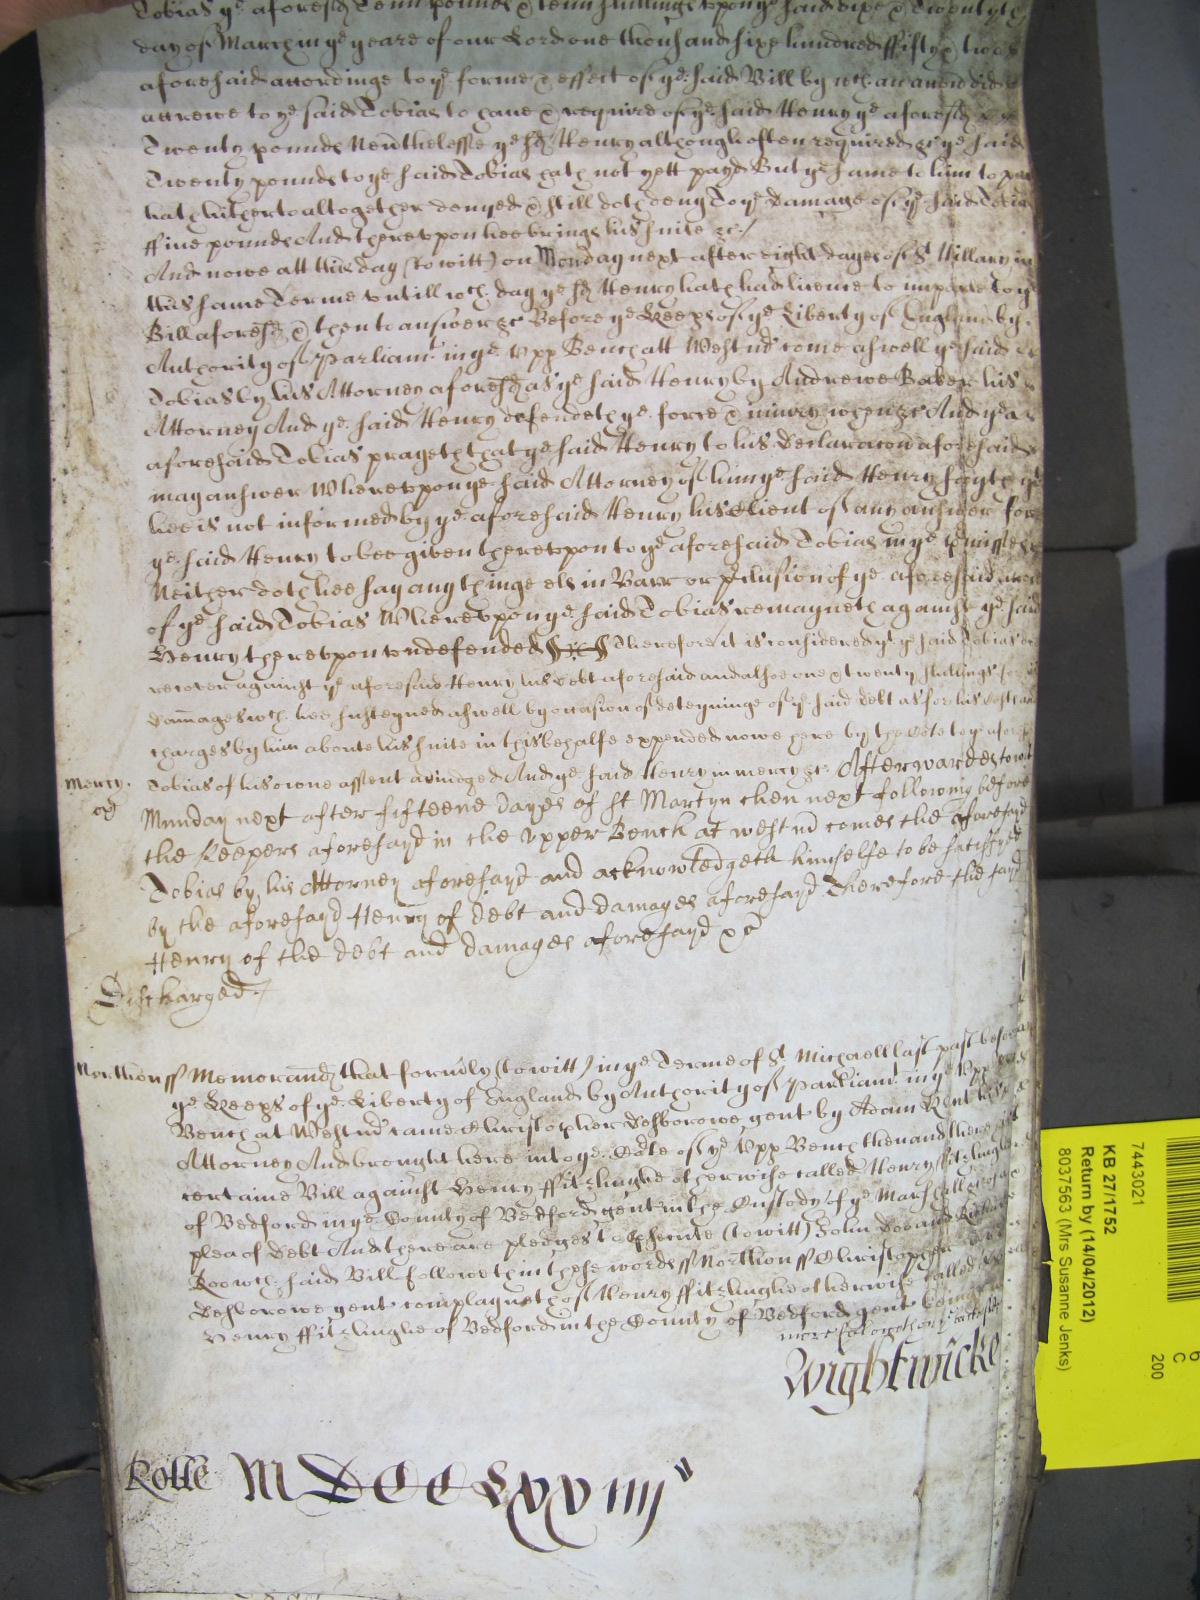 Tobias ye aforesd Tenn pounds & tenn shillings vpon ye said sixe & Twentyth
day of March in ye yeare of our Lord one thousand sixe hundred ffifty & two
aforesaid accordinge to ye forme & effect of ye said Bill by wch an accon did
accrewe to ye said Tobias to haue & require of ye said Henry ye aforesd
Twenty pounds Neuthelesse ye sd Henry although often required &c ye said
Twenty pounds to ye said Tobias hath not yett payd But ye same to him to pay
hath hitherto altogether denyed & still doth deny To ye damage of ye said Tobias
ffiue pounds And therevpon hee brings his suite &c /
And nowe att this day (to witt) on Monday next after eight dayes of St Hillary in
this same Terme vntill wch day ye sd Henry hath had licence to imparle to ye
Bill aforesd & then to answer &c Before ye Keeps of ye Liberty of England by
Authority of Parliamt in ye Vpp Bench att Westm come aswell ye said
Tobias by his Attorney aforesd as ye said Henry by Andrewe Baker his
Attorney And ye said Henry defendeth ye force & iniury when &c And ye
aforesaid Tobias prayeth that ye said Henry to his declaracon aforesaid
may answer Wherevpon ye said Attorney of him ye said Henry sayth yt
hee is not informed by ye aforesaid Henry his Client of any answer for
ye said Henry to bee given therevpon to ye aforesaid Tobias in ye pmisses
Neither doth hee say any thinge els in Barr or pclusion of ye aforesaid accon
of ye said Tobias Wherevpon ye said Tobias remayneth against ye said
Henry therevpon vndefended Therefore it is considered yt ye said Tobias doe
recover against ye aforesaid Henry his debt aforesaid and alsoe one & twenty shillings for
dammages wch hee susteyned aswell by occasion of deteyninge of ye said debt as for his costs and
charges by him aboute his suite in this behalfe expended nowe here by the Cote to ye aforesd
Mercy. Tobias of his owne assent adiudged And ye said Henry in mercy &c Afterwardes to witt
Munday next after fifteene dayes of St Martyn then next following before
the Keepers aforesayd in the Vpper Bench at westm comes the aforesayd
Tobias by his Attorney aforesayd and acknowledgeth himselfe to be satisfyed
by the aforesayd Henry of debt and damages aforesayd Therefore the sayd
Henry of the debt and damages aforesayd &c
Discharged /
Northton ss Memorand that formly (to witt) in ye Terme of St Michaell last past before
ye Keeps of ye Liberty of England by Authority of Parliamt in ye Vpp
Bench at Westm came Christopher Desborowe gent by Adam Kent his
Attorney And brought here into ye Cote of ye Vpp Bench then and there his
certaine Bill against Henry ffitzhughe otherwise called Henry ffitzhughe
of Bedford in ye County of Bedford gent in the Custody of ye Marshall &c of a
plea of debt And there are pledges to psecute (to witt) John Doe and Richard
Roe wch said Bill followeth in these words ss Northton ss Christopher
Desborowe gent complayneth of Henry ffitzhughe otherwise called
Henry ffitzhughe of Bedford in the County of Bedford gent being
more followeth on ye
Wightwicke
Rolle MDCCLXXiiij
7443021
KB 27/1752
Return by (14/04/2012)
8037563 (Mrs Susanne Jenks)
6
C
200